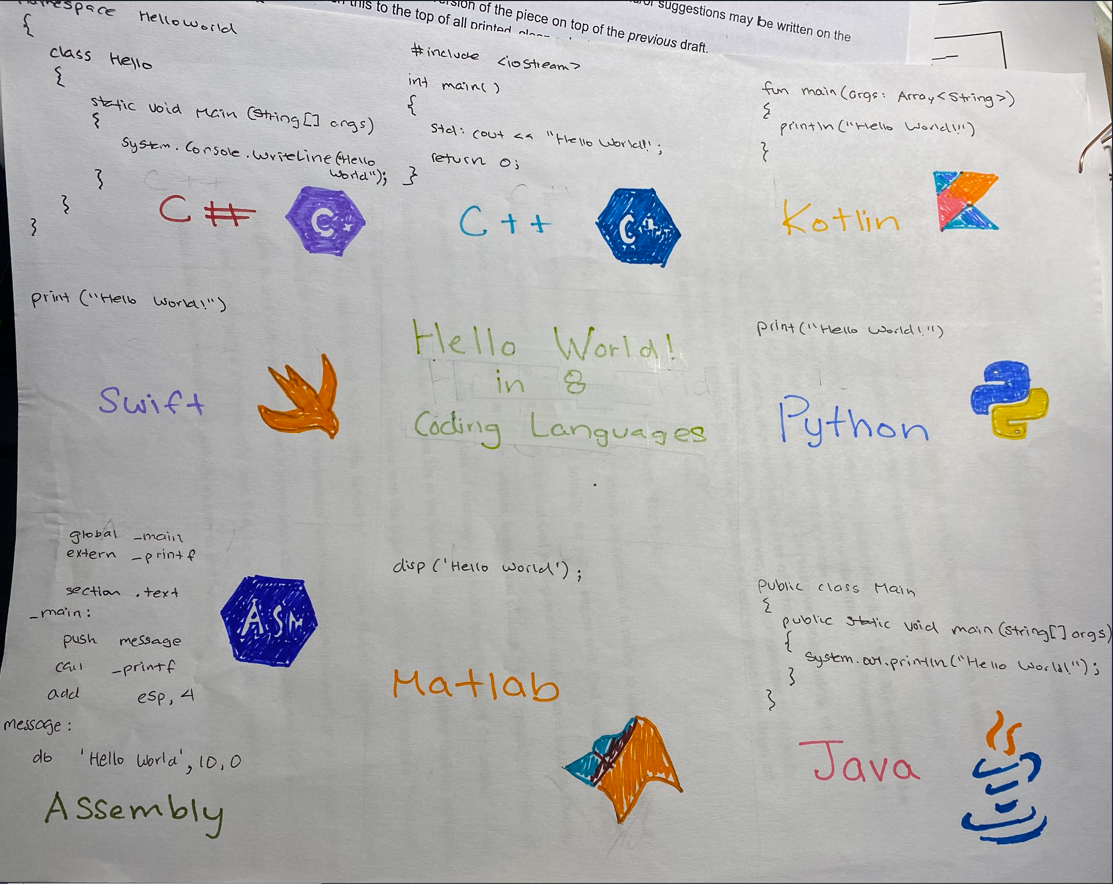 this to the top of all printed
version of the piece on top of the previous draft.
suggestions may be written on the
namespace HelloWorld
{
class Hello
{
static void Main (String[] args)
{
System.Console.WriteLine("Hello
World");
}
}
}
C#
C+
#include <iostream>
int main()
{
std: cout << "Hello World!";
return 0;
}
C++
C++
fun main(args: Array<String>)
{
println("Hello World!")
}
Kotlin
print ("Hello World!")
Swift
Hello World!
in 8
Coding Languages
print("Hello World!")
Python
global _main
extern _printf
section .text
_main:
push message
call _printf
add esp, 4
message:
db 'Hello World', 10, 0
ASM
Assembly
disp ('Hello World');
Matlab
public class Main
{
public static void main (String[] args)
{
System.out.println("Hello World!");
}
}
Java